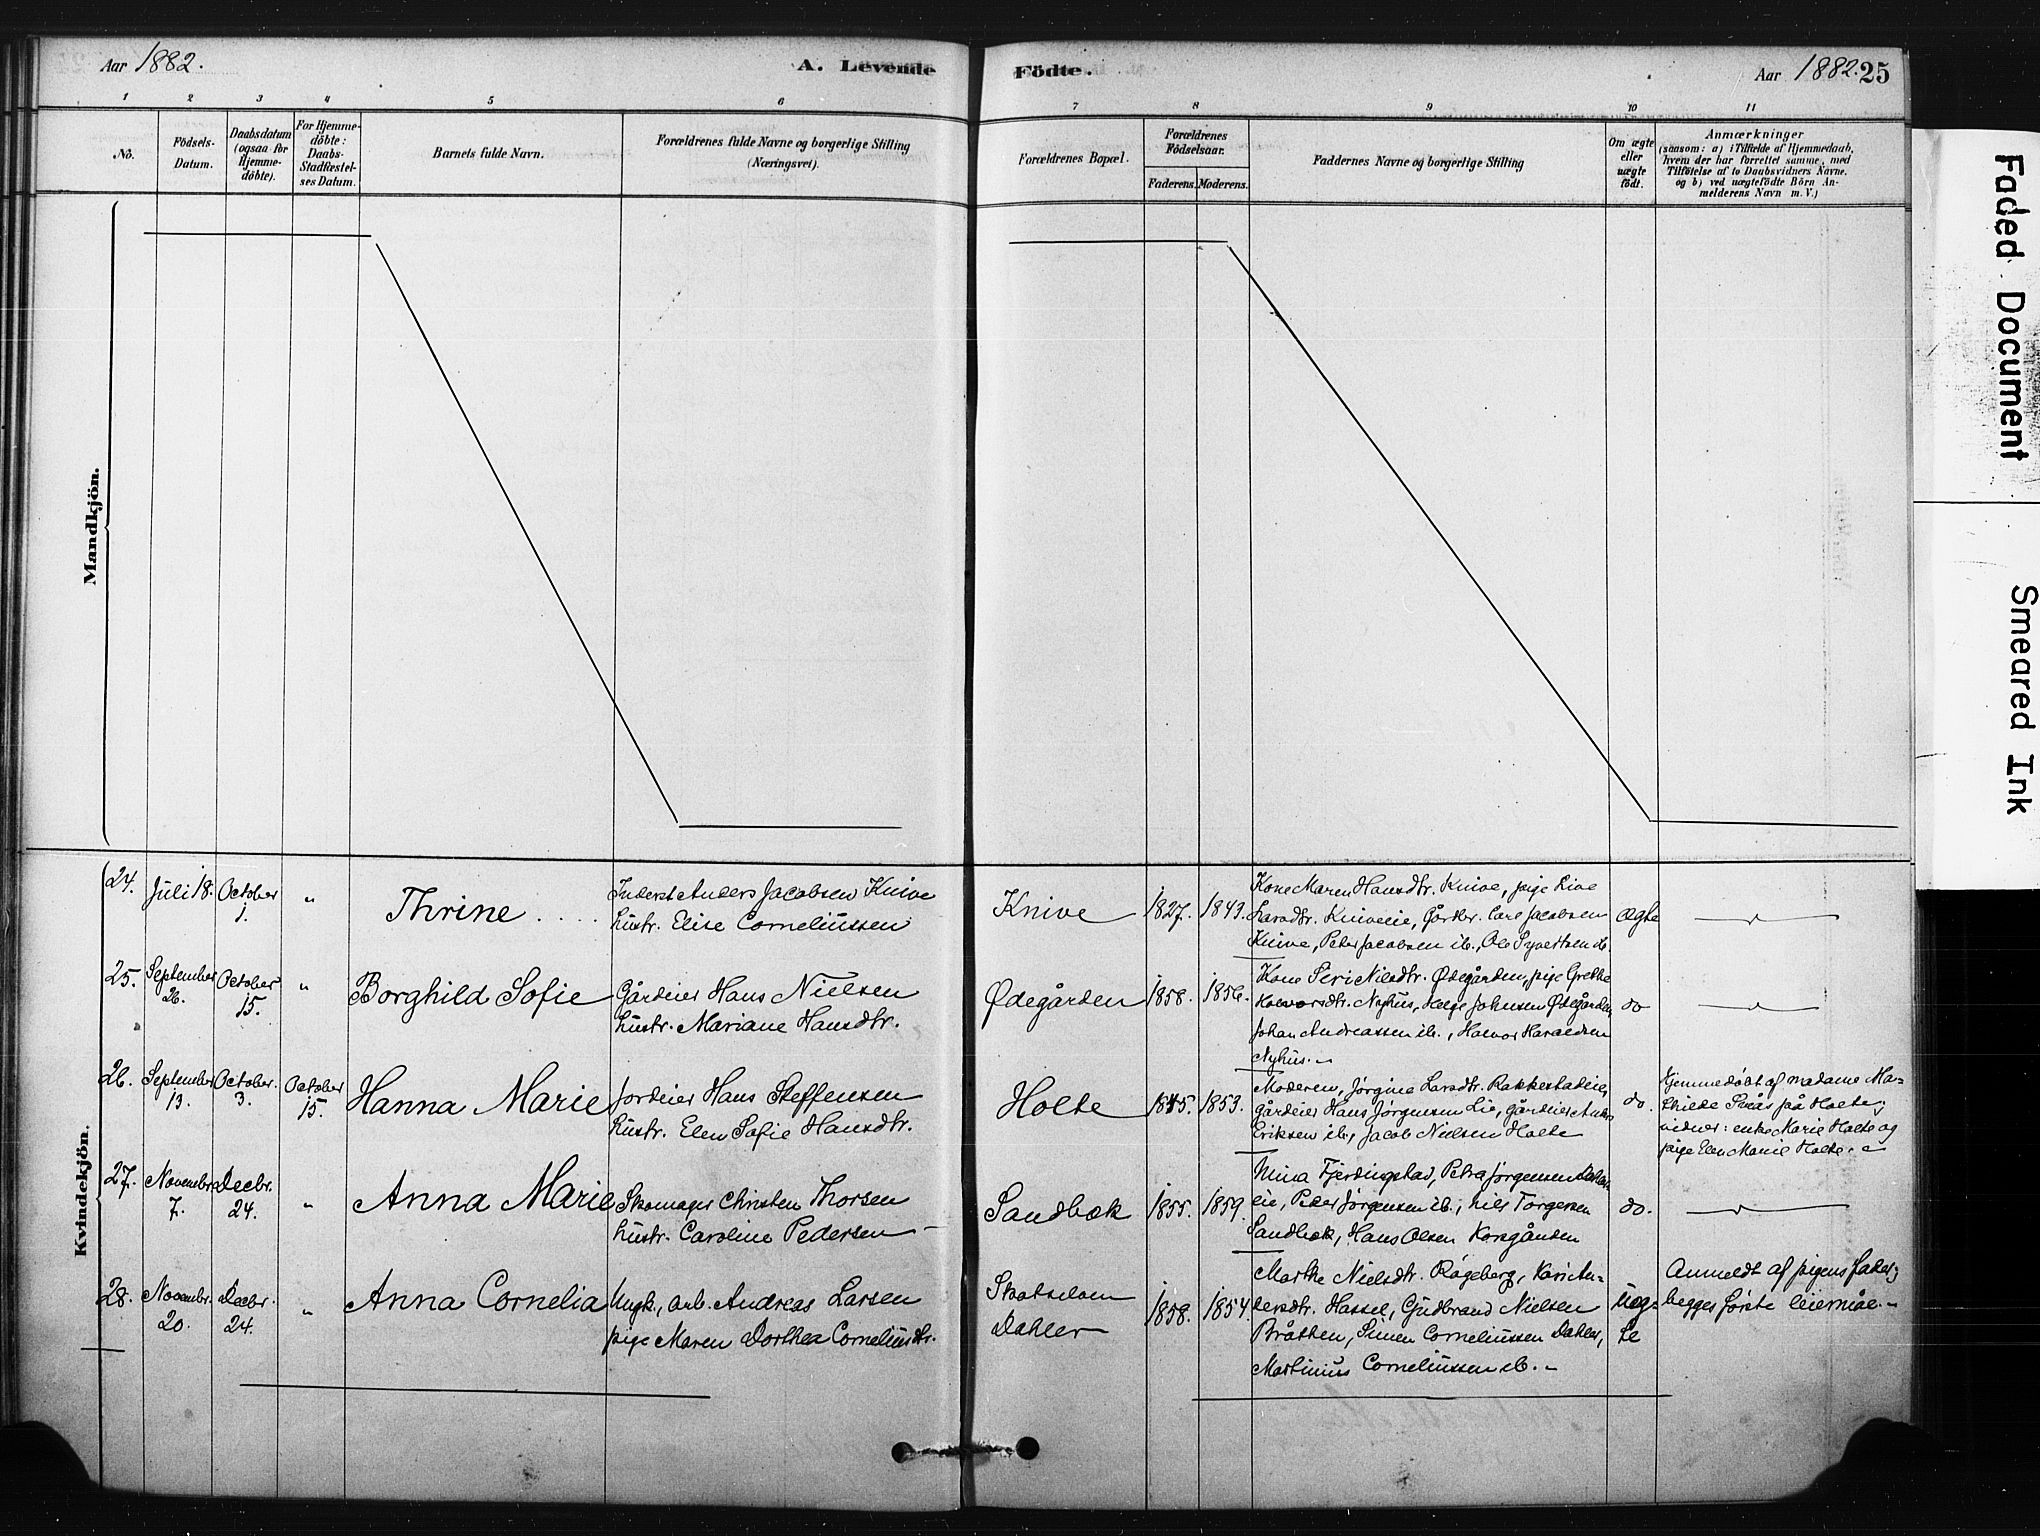 Aar 1882. A. Levende Födte. Aar 1882. 25
1 2 3 4 5 6 7 8 9 10 11
No.
Födsels-
Datum.
Daabsdatum
(ogsaa for
Hjemme-
döbte).
For Hjemme-
döbte:
Daabs-
Stadfæstel-
ses Datum.
Barnets fulde Navn.
Forældrenes fulde Navne og borgerlige Stilling
(Næringsvei).
Forældrenes Bopæl.
Forældrenes
Födselsaar.
Faderens. Moderens.
Faddernes Navne og borgerlige Stilling
Om ægte
eller
uægte
födt.
Anmærkninger
(saasom: a) i Tilfælde af Hjemmedaab,
hvem der har forrettet samme, med
Tilföielse af to Daabsvidners Navne.
og b) ved uægtefödte Börn An-
melderens Navn m.V.)
Mandkjön.
Kvindekjön.
24.
Juli 18.
October
1.
"
Thrine
Inderst Anders Jacobsen Knive
hustr. Elise Corneliussen
Knive
1827. 1843.
Kone Maren Hansdtr. Knive, pige Live
Larsdtr. Kniveie, Gårdbr. Carl Jacobsen
Knive, Peter Jacobsen ib., Ole Syvertsen ib.
Ægte
25.
September
26.
October
15.
"
Borghild Sofie
Gårdeier Hans Nielsen
hustr. Mariane Hansdtr.
Ødegården
1858. 1856.
Kone Siri Nilsdtr. Ødegården, pige Grethe
Halvorsdtr. Nyhus, Helge Johnsen Ødegården
Johan Andreassen ib., Halvor Haraldsen
Nyhus.
do
26.
September
13.
October.
3.
October
15.
Hanna Marie
Jordeier Hans Steffensen
hustr. Elen Sofie Hansdtr.
Holte
1845. 1853.
Moderen, Jørgine Larsdtr. Rakkestadeie,
gårdeier Hans Jørgensen Lie, gårdeier
Eriksen ib., Jacob Nielsen Holte
do.
Hjemmedøbt af madame Ma-
thilde på Holte;
vidner: enke Marie Holte og
pige Elen Marie Holte.
27.
Novembr.
7.
Decbr.
24.
"
Anna Marie
Skomager Christen Thorsen
hustr. Caroline Pedersen
Sandbæk
1855. 1859.
Mina Fjerdingstad, Petra Jørgensen
eie, Peder Jørgensen ib., Nils Torgersen
Sandbæk, Hans Olsen Korsgården
do.
28.
Novembr.
20.
Decbr.
24.
"
Anna Cornelia
Ungk., arb. Andreas Larsen
pige Maren Dorthea Corneliusdtr.
Skotselven
Dahler
1858. 1854.
Marthe Nielsdtr. Røgeberg, Kari An-
dersdtr. Hassel, Gudbrand Nielsen
Bråthen, Simen Corneliussen Dahler,
Martinius Corneliussen ib.
uæg-
te
Anmeldt af pigens fader;
begges første leiermål.
Faded Document
Smeared Ink